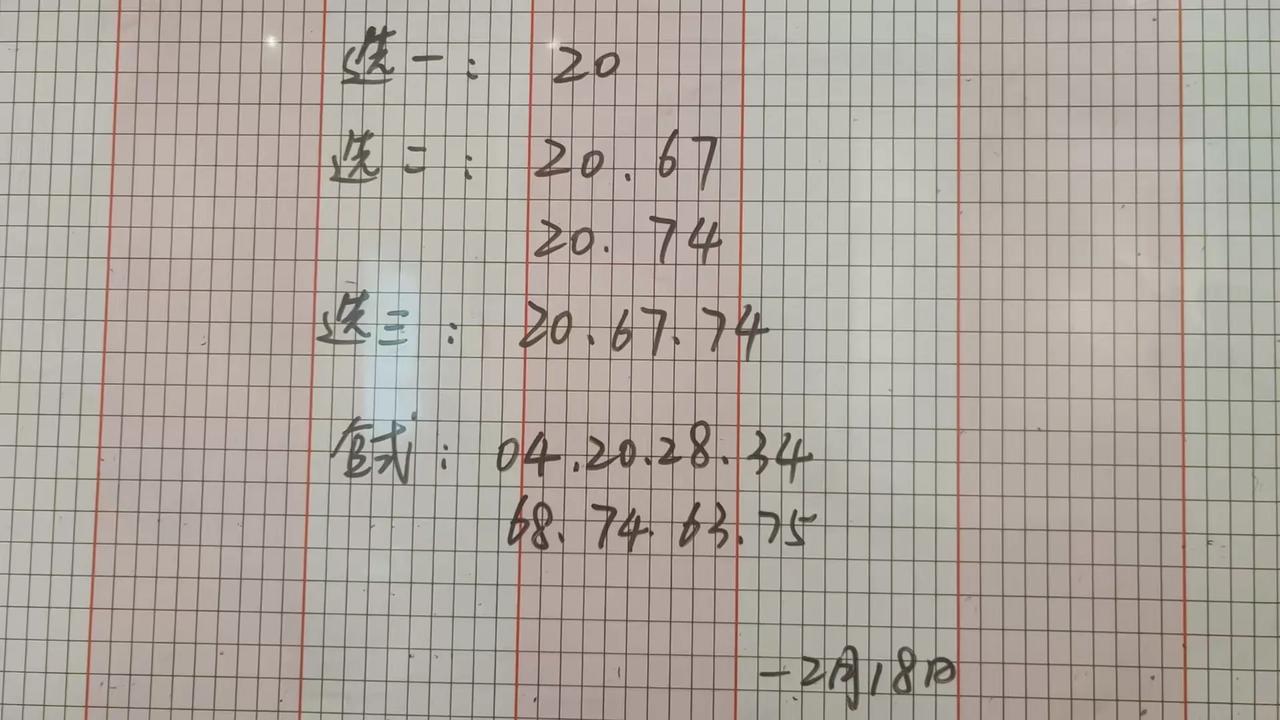 选一: 20
选二: 20.67
20.74
选三: 20.67.74
复式: 04.20.28.34
68.74.63.75
-2月18日